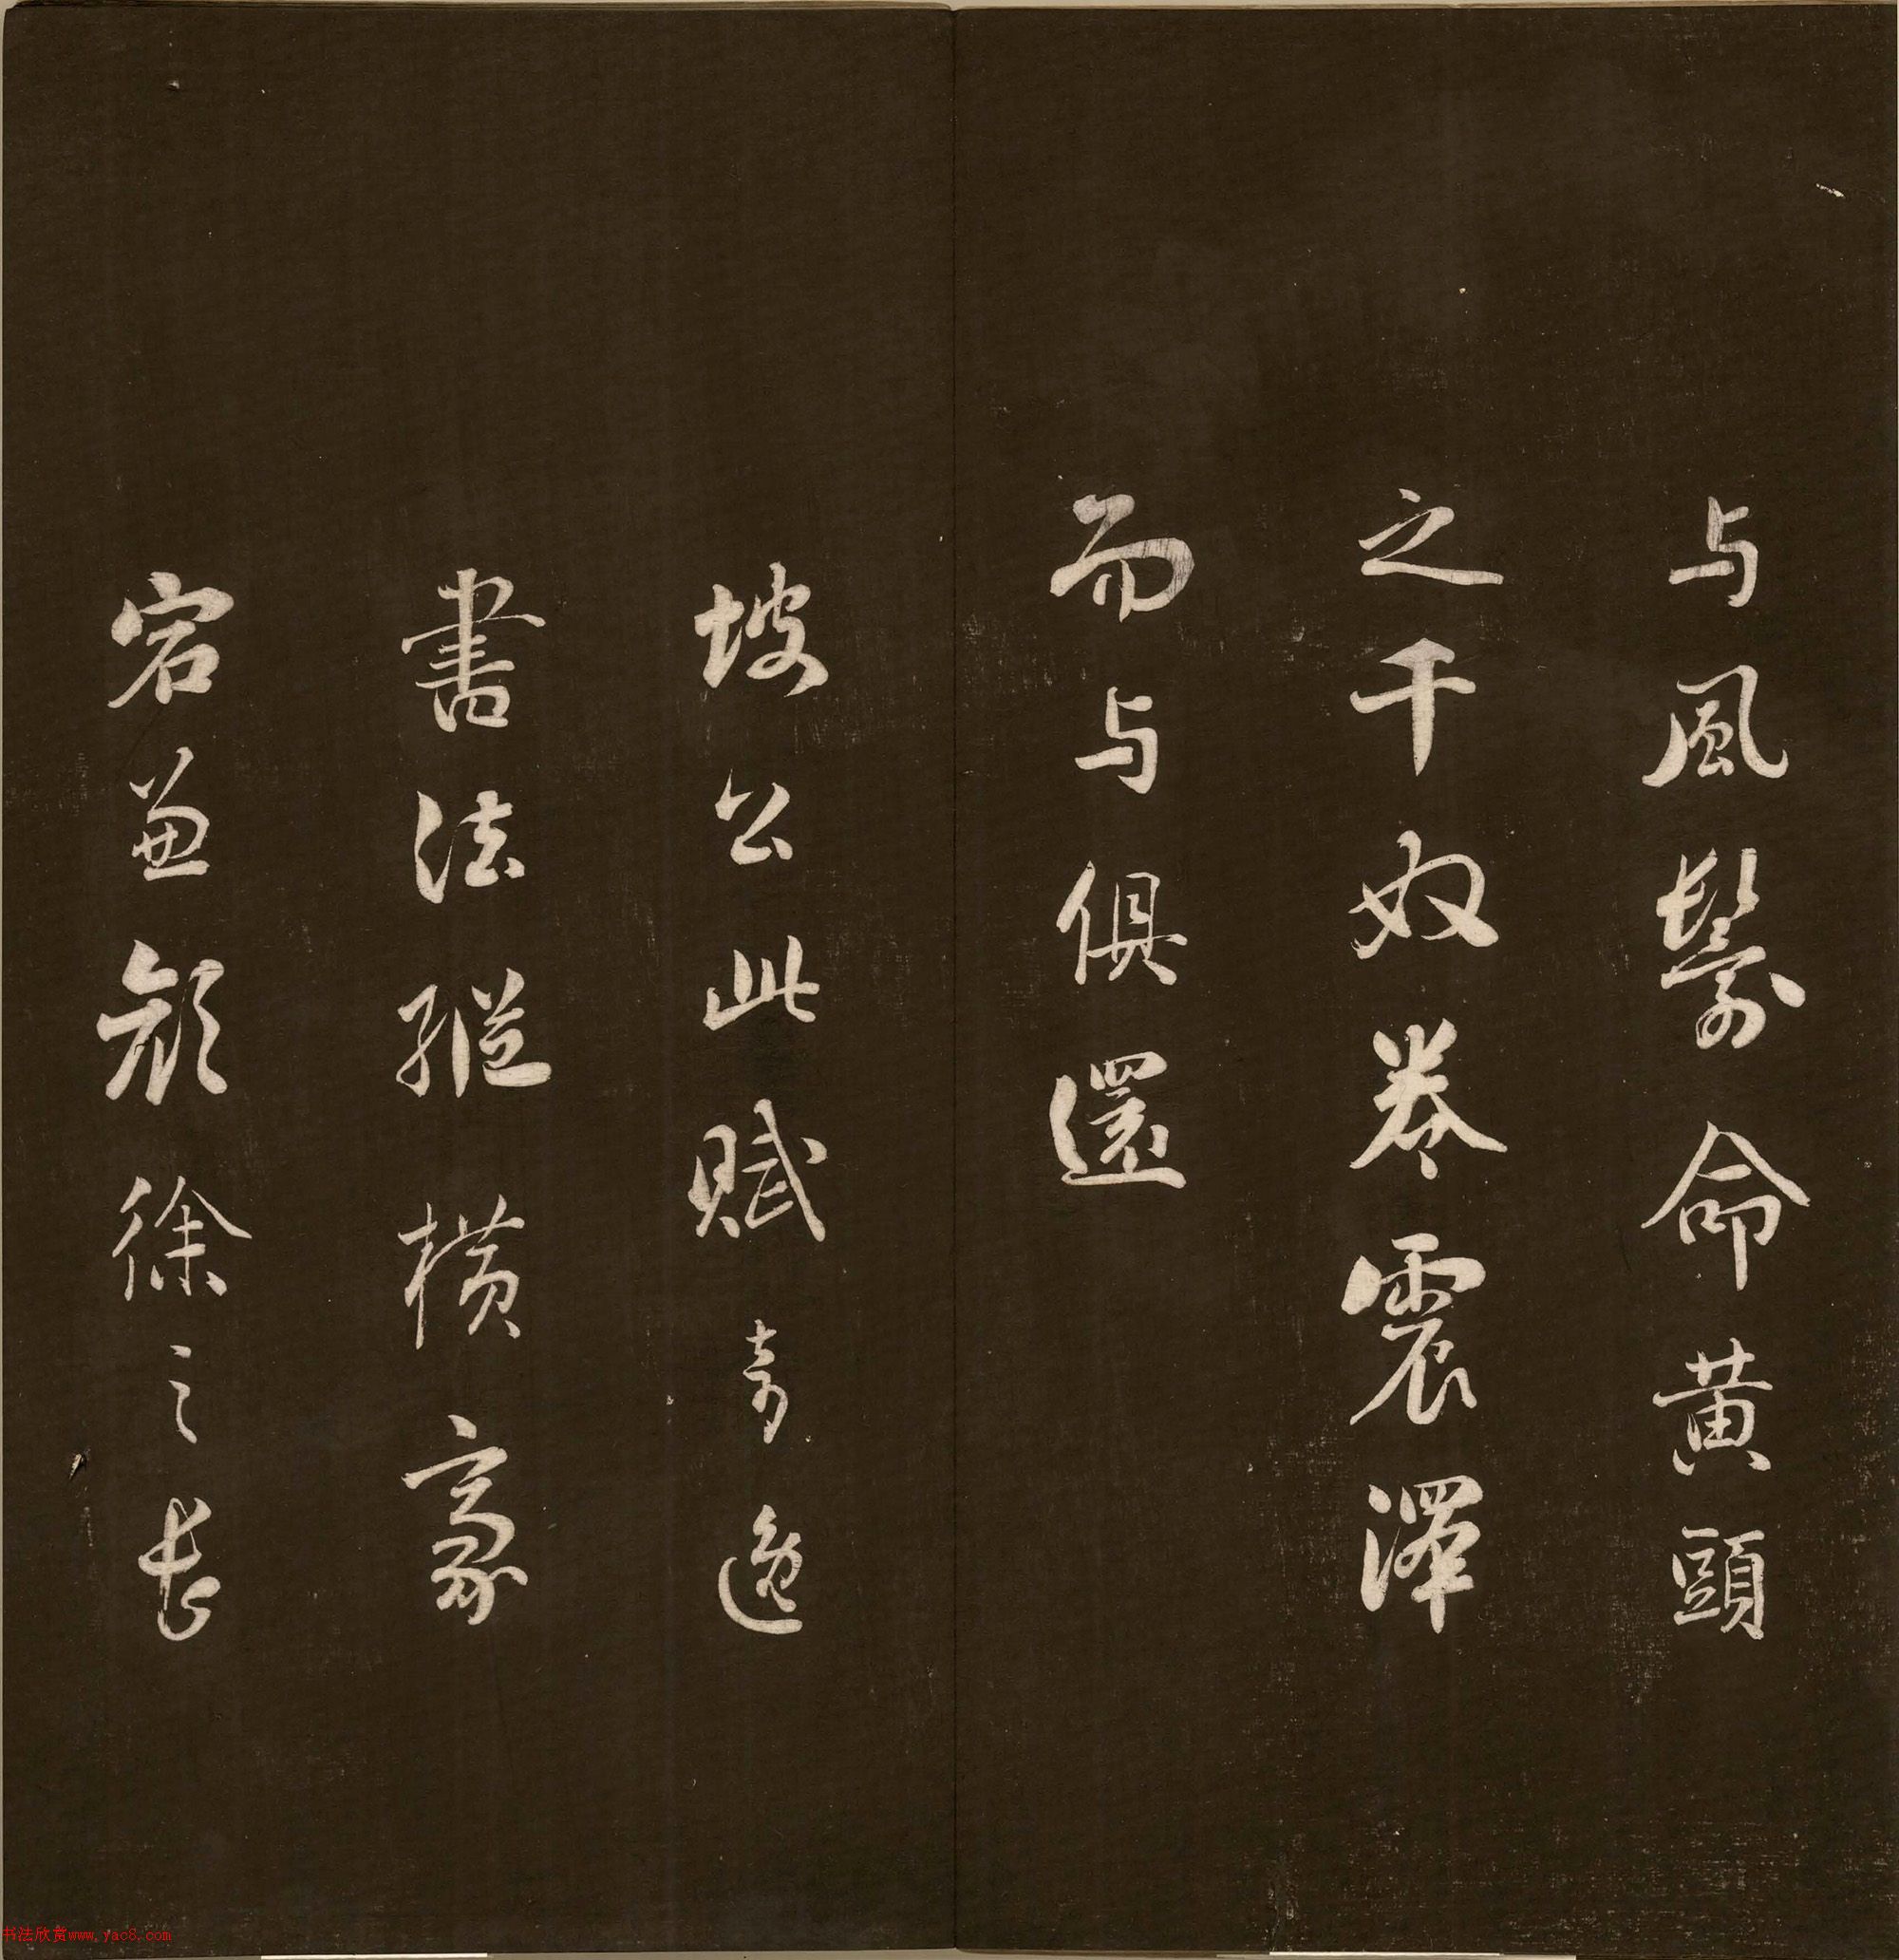 与風鬟命黄頭
之千奴卷震澤
而与俱還
坡公此賦奇逸
書法縱横豪
宕兼顔徐之長
书法欣赏www.yac8.com